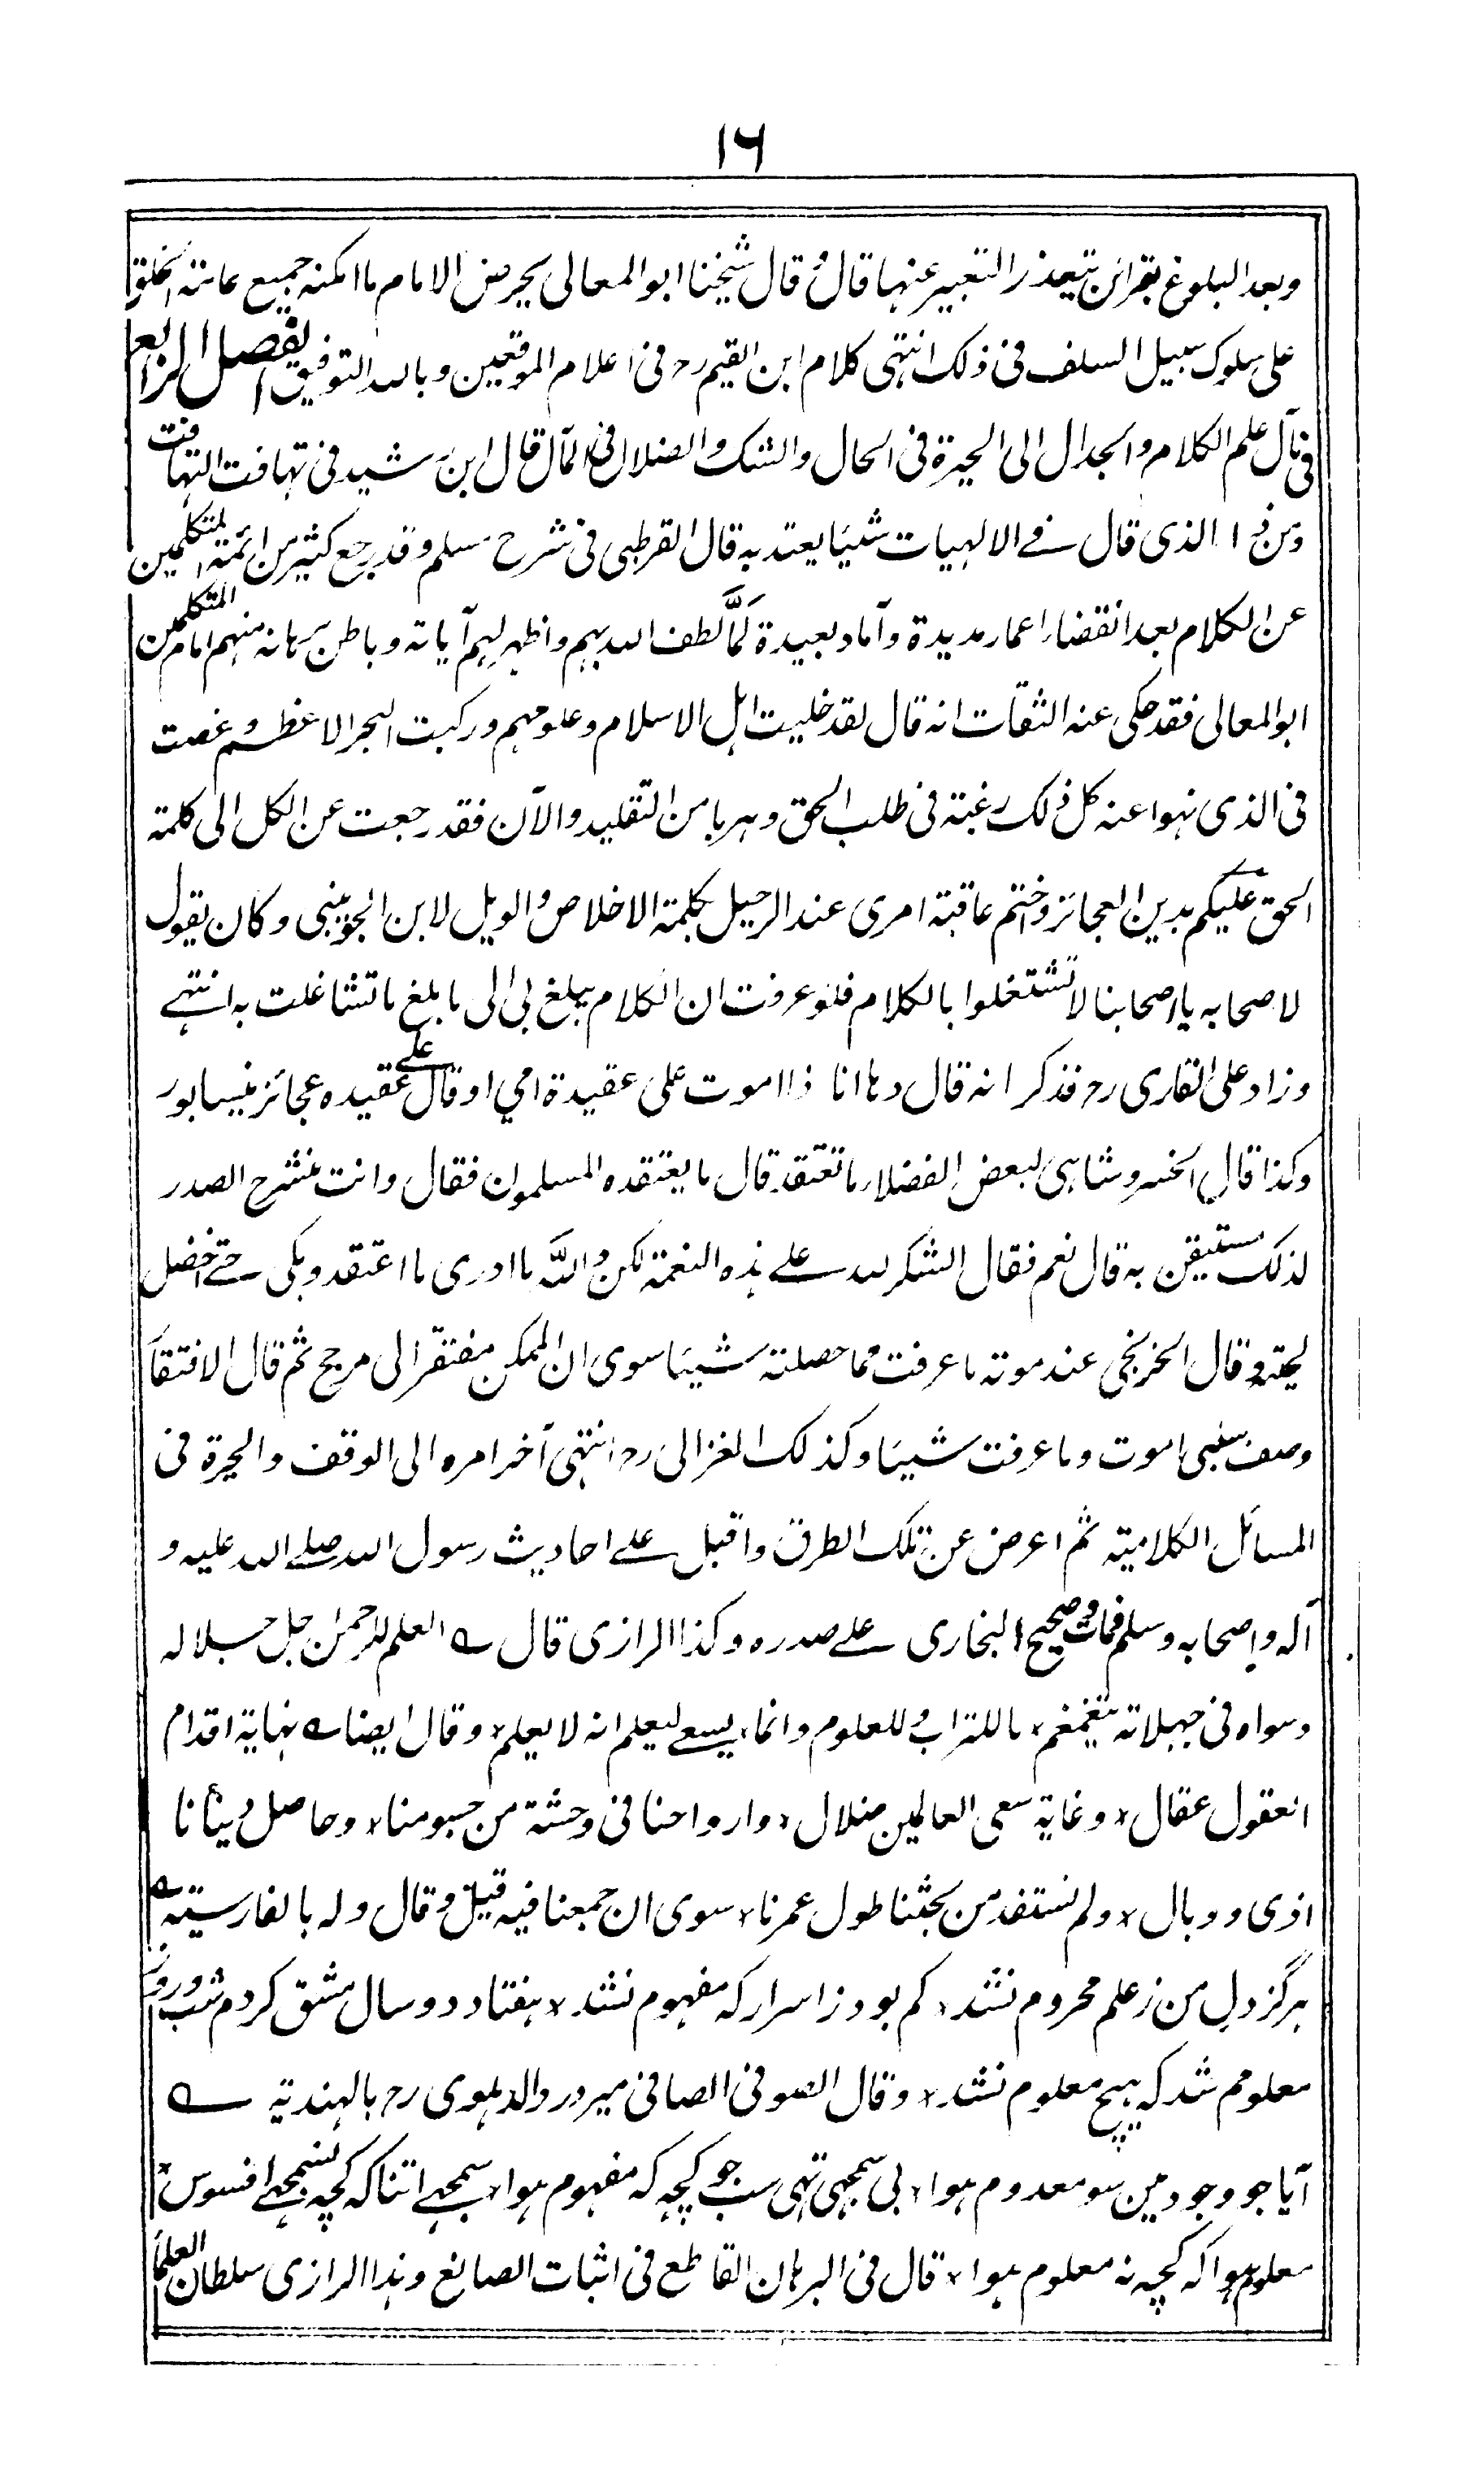 ١٦
وبعد البلوغ بقرائن يتعذر التعبير عنها قال قال شيخنا ابو المعالى يحرض الامام ما امكنه جميع عامة الخلق
على سلوك سبيل السلف فى ذلك انتهى كلام ابن القيم رح فى اعلام الموقعين وبالله التوفيق الفصل الرابع
فى مآل علم الكلام والجدال الى الحيرة فى الحال والشك والضلال فى المآل قال ابن رشيد فى تهافت التهافت
ومن ذا الذى قال فے الالهيات شيئا يعتد به قال القرطبى فى شرح مسلم وقد رجع كثير من ائمة المتكلمين
عن الكلام بعد انقضاء اعمار مديدة وآماد بعيدة لمَّا لطف الله بهم واظهر لهم آياته وباطن برهانه منهم امام المتكلمين
ابو المعالى فقد حكى عنه الثقات انه قال لقد خليت اهل الاسلام وعلومهم وركبت البحر الاعظم وغصت
فى الذى نهوا عنه كل ذلك رغبة فى طلب الحق وهربا من التقليد والآن فقد رجعت عن الكل الى كلمة
الحق عليكم بدين العجائز واختم عاقبة امرى عند الرحيل بكلمة الاخلاص والويل لابن الجوينى وكان يقول
لاصحابه يا اصحابنا لا تشتغلوا بالكلام فلو عرفت ان الكلام يبلغ بى الى ما بلغ ما تشاغلت به انتهے
وزاد على القارى رح فذكر انه قال وها انا ذا اموت على عقيدة امي او قال علے عقيده عجائز نيسابور
وكذا قال الخسروشاهى لبعض الفضلاء ما تعتقد قال ما يعتقده المسلمون فقال وانت منشرح الصدر
لذلك مستيقن به قال نعم فقال الشكر لله علے هذه النعمة لكن والله ما ادرى ما اعتقد وبكى حتے اخضل
لحيته وقال الخونجى عند موته ما عرفت مما حصلته شيئا سوى ان الممكن مفتقر الى مرجح ثم قال الافتقار
وصف سلبى اموت وما عرفت شيئا وكذلك الغزالى رح انتهى آخر امره الى الوقف والحيرة فى
المسائل الكلامية ثم اعرض عن تلك الطرق واقبل علے احاديث رسول الله صلے الله عليه و
آله واصحابه وسلم فمات وصحيح البخارى علے صدره وكذا الرازى قال ؎ العلم للرحمن جل جلاله
وسواه فى جهلاته يتغمغم ٭ ما للتراب وللعلوم وانما ٭ يسعے ليعلم انه لا يعلم ٭ وقال ايضا ؎ نهاية اقدام
العقول عقال ٭ وغاية سعى العالمين ضلال ٭ وارواحنا فى وحشة من جسومنا ٭ وحاصل دنيانا
اذى ووبال ٭ ولم نستفد من بحثنا طول عمرنا ٭ سوى ان جمعنا فيه قيل وقال وله بالفارسية ؎
ہرگز دل من ز علم محروم نشد ٭ کم بود ز اسرار کہ مفہوم نشد ٭ ہفتاد دو سال مشق کردم شب وروز
معلومم شد کہ ہیچ معلوم نشد ٭ وقال الصوفى الصافى مير درد الدهلوى رح بالهندية ؎
آیا جو وجود مین سو معدوم ہوا ٭ بی سمجہی تہی سب جو کچہہ کہ مفہوم ہوا ٭ سمجہے اتنا کہ کچہہ نسمجہے افسوس ٭
معلوم ہوا کہ کچہہ نہ معلوم ہوا ٭ قال فى البرهان القاطع فى اثبات الصانع وهذا الرازى سلطان العلماء